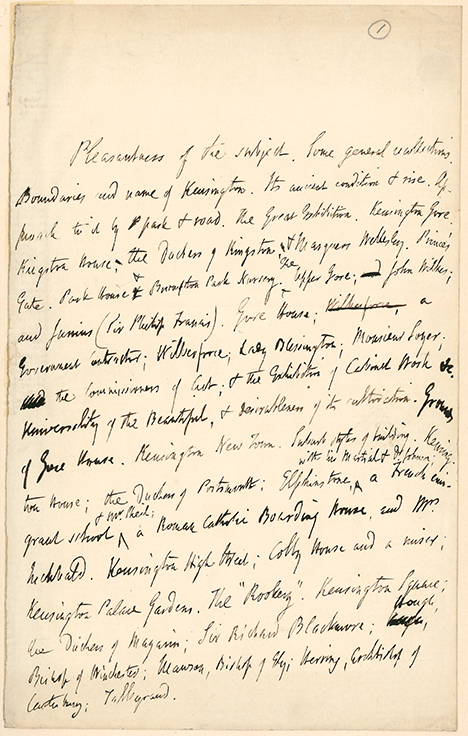 1
Pleasantness of the subject. Some general recollections.
Boundaries and name of Kensington. Its ancient condition & rise. Ap-
proach to it by park & road. The Great Exhibition. Kensington Gore.
Kingston House; the Duchess of Kingston, & Marquess Wellesley. Prince's
Gate. Park House & Brompton Park Nursery. The Upper Gore; John Wilkes;
and Junius (Sir Philip Francis). Gore House; Wilberforce, a
Government Contractor; Wilberforce; Lady Blessington; Monsieur Soyer;
the Commissioners of 1851, & the Exhibition of Cabinet Work &c.
Universality of the Beautiful, & desirableness of its cultivation. Grounds
of Gore House. Kensington New Town. Suburb styles of building. Kensing-
with Sir Martial & Dr Johnson;
ton House; the Duchess of Portsmouth; Elphinstone, a French emi-
& Mr. Sheil;
grant school, a Roman Catholic Boarding House, and Mrs.
Inchbald. Kensington High Street; Colby House and a miser;
Kensington Palace Gardens. The "Rookery". Kensington Square;
the Duchess of Mazarin; Sir Richard Blackmore; Hough,
Bishop of Winchester; Mawson, Bishop of Ely; Herring, Archbishop of
Canterbury; Talleyrand.